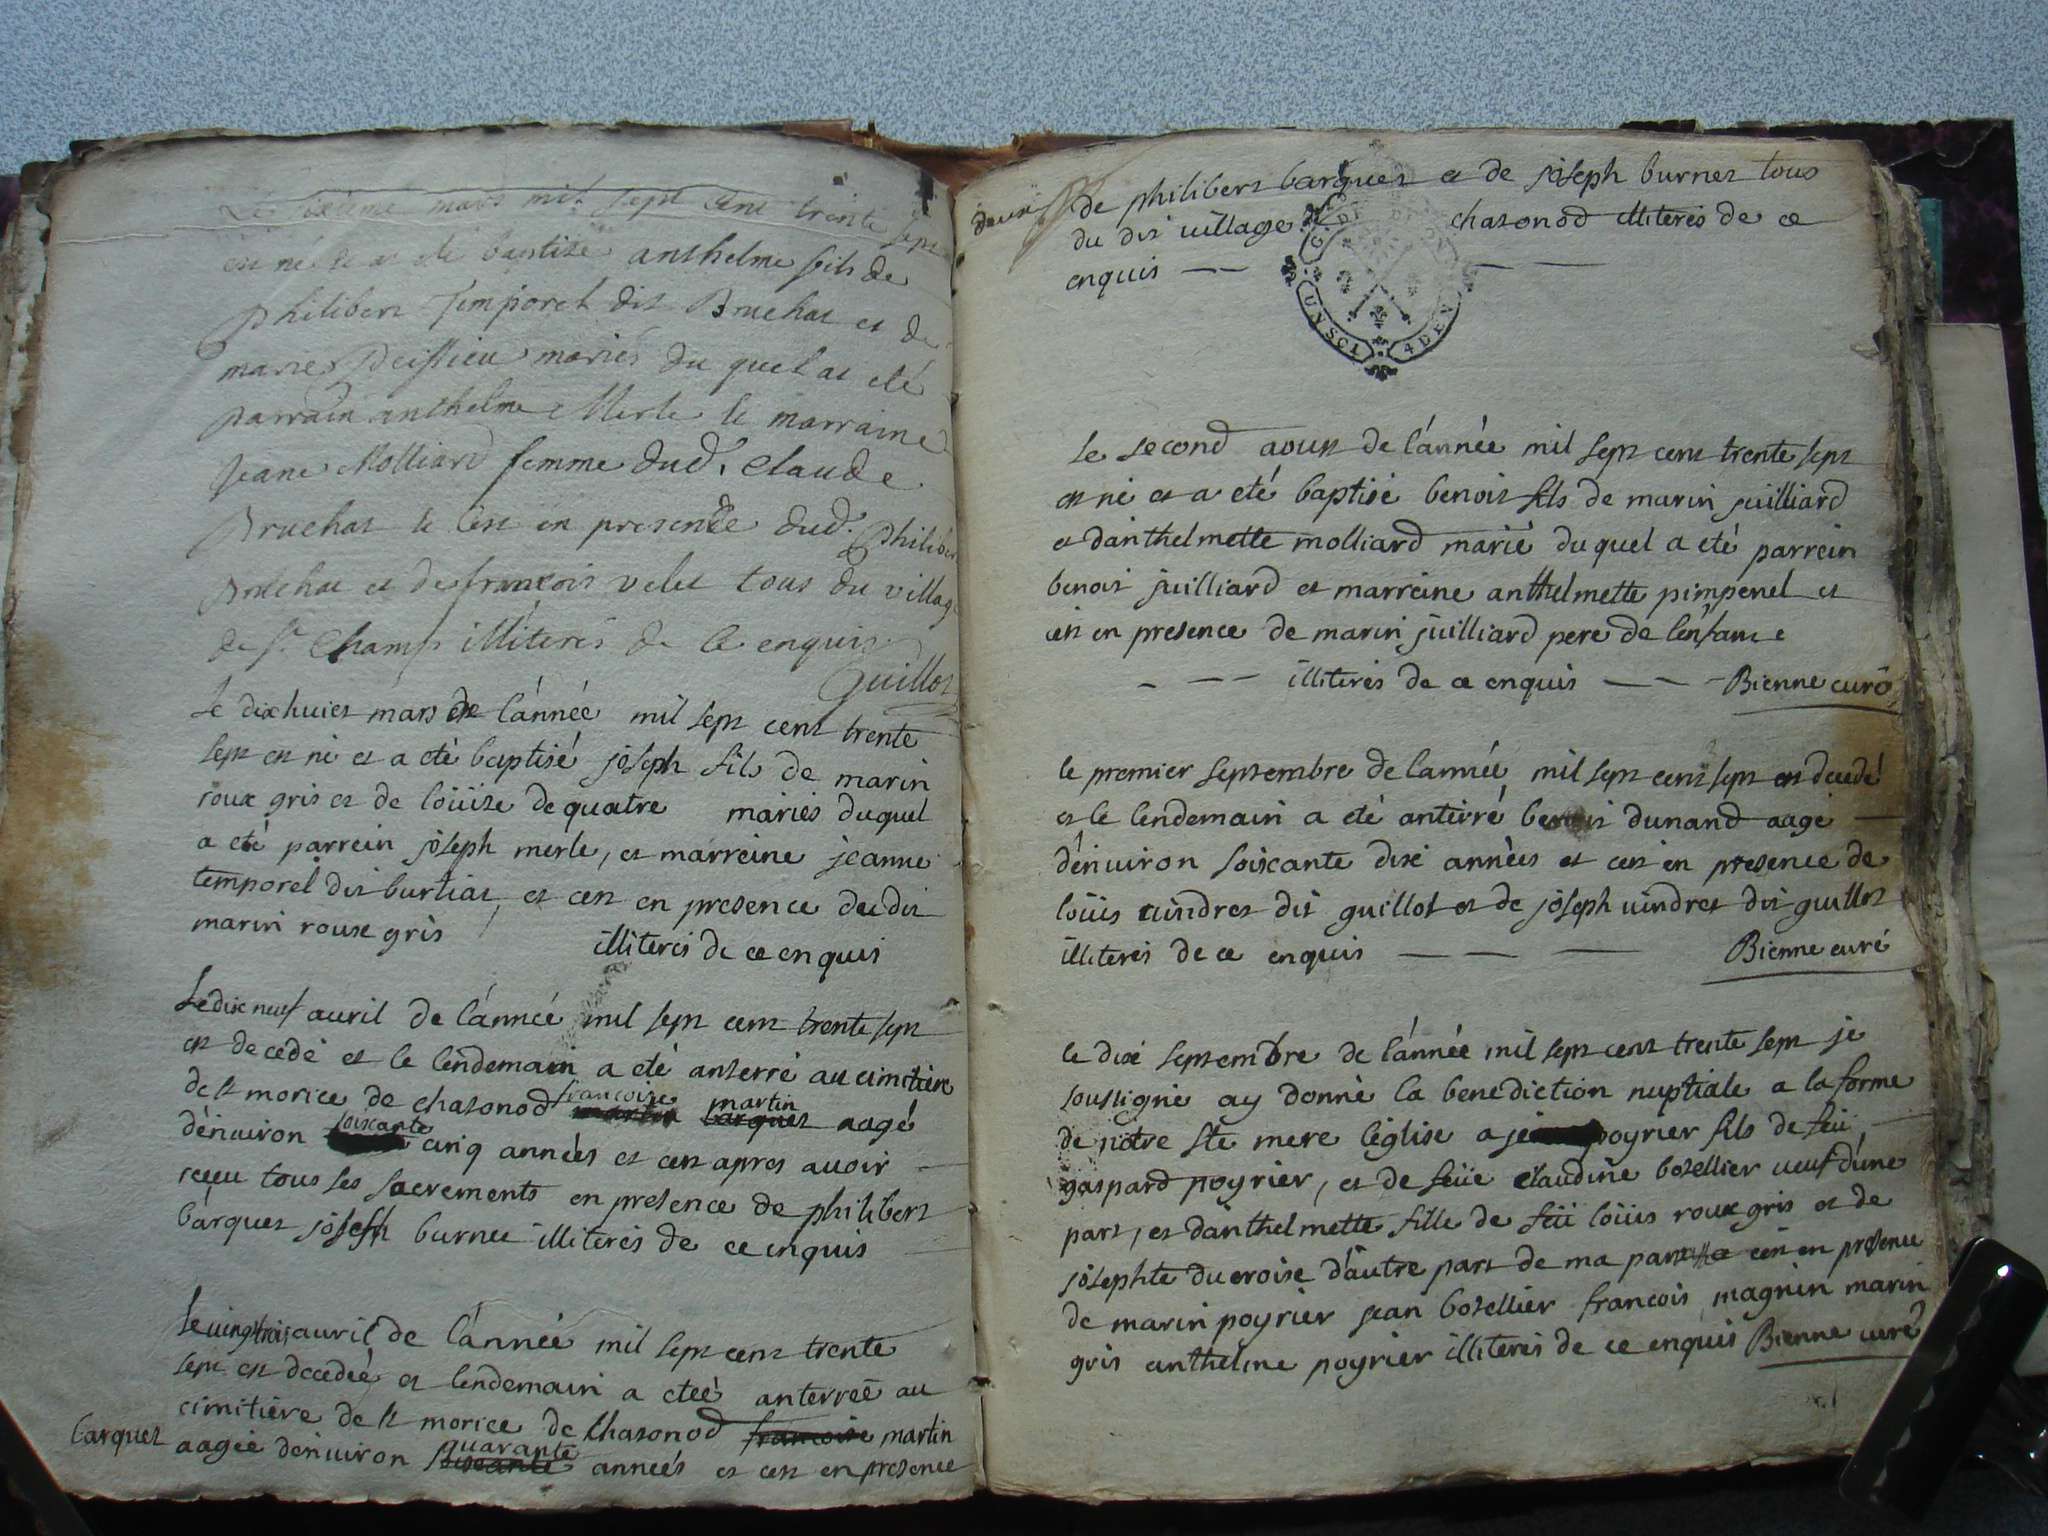 Le sixieme mars mil sept cent trente sept
est né et at été baptisé anthelme fils de
philibert Temporel dit Bruchat et de
marie peissieu mariés du quel at eté
parrain anthelme Merle le marraine
jeane Molliard femme dud. Claude
Bruchat le cest en presence dud. philibert
Bruchat et de francois velet tous du village
de st. Champ illiteres de ce enquis
Guillot
Le dixhuict mars de l'année mil sept cent trente
sept est né et a eté baptisé joseph fils de marin
roux gris et de loüise de quatre mariés duquel
a eté parrein joseph merle, et marreine jeanne
temporel dit burtiat, et cest en presence du dit
marin roux gris illiterés de ce enquis
Le dix neuf avril de l'année mil sept cent trente sept
est decedé et le lendemain a eté anterré au cimitiere
de st morice de chasonod francoise martin barquet martin aagé
d'enuiron soixante cinq années et cest apres auoir
receu tous ses sacrements en presence de philibert
barquet joseph burnet illiterés de ce enquis
Le uingt trois auril de l'année mil sept cent trente
sept est decedeé et lendemain a eteé anterreé au
cimitiere de st morice de chasonod francoise martin
barquet aageé denuiron soixante quarante années et cest en presence
deux De philibert barquet et de joseph burnet tous
du dit uillage de chasonod illiterés de ce
enquis
G. DE
UN SOL 4 DEN
le second aoust de l'année mil sept cent trente sept
est né et a eté baptisé benoit fils de marin juilliard
et danthelmette molliard marié du quel a eté parrein
benoit juilliard et marreine anthelmette pimpenel et
cest en presence de marin juilliard pere de l'enfant
illiterés de ce enquis Bienne curé
le premier septembre de l'année mil sept cent sept est decedé
et le lendemain a eté anterré benoit dunand aagé
d'enuiron soixante dixe années et cest en presence de
loüis uindret dit guillot et de joseph uindret dit guillot
illiterés de ce enquis Bienne curé
le dixe septembre de l'année mil sept cent trente sept je
soussigné ay donné la benediction nuptiale a la forme
de notre ste mere l'église a poyrier fils de feü
gaspard poyrier, et de feüe claudine botellier ueuf d'une
part, et danthelmette fille de feü loüis roux gris et de
josephte ducroise d'autre part de ma paroisse cest en presence
de marin poyrier jean botellier francois magnin marin
gris anthelme poyrier illiterés de ce enquis Bienne curé